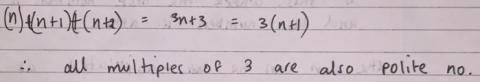 (n)+(n+1)+(n+2) = 3n+3 = 3(n+1)
∴ all multiples of 3 are also polite no.